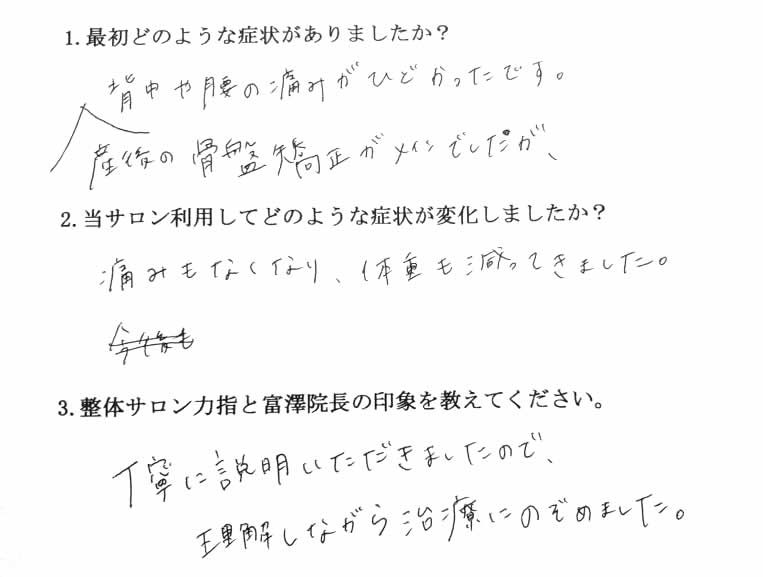 1. 最初どのような症状がありましたか？
背中や腰の痛みがひどかったです。
産後の骨盤矯正がメインでしたが、
2. 当サロン利用してどのような症状が変化しましたか？
痛みもなくなり、体重も減ってきました。
今後も
3. 整体サロン力指と富澤院長の印象を教えてください。
丁寧に説明いただきましたので、
理解しながら治療にのぞめました。